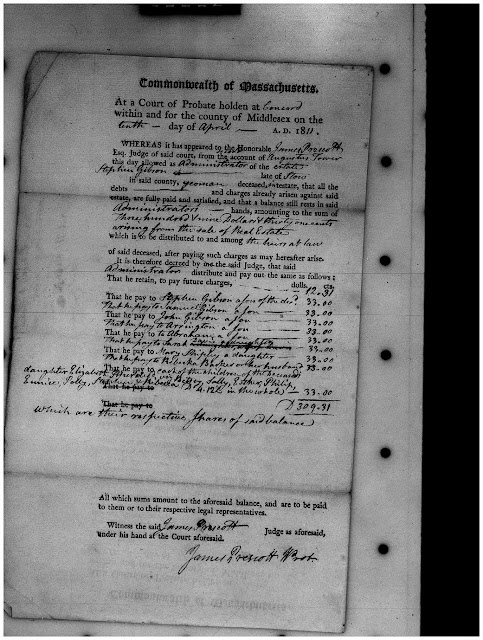 Commonwealth of Massachusetts.
At a Court of Probate holden at Concord
within and for the county of Middlesex on the
tenth — day of April — A. D. 1811.
WHEREAS it has appeared to the Honorable James Prescott
Esq. Judge of said court, from the account of Augustus Tower
this day allowed as Administrator of the estate
Stephen Gibson late of Stow
in said county, yeoman deceased, intestate, that all the
debts — and charges already arisen against said
estate, are fully paid and satisfied, and that a balance still rests in said
Administrators — hands, amounting to the sum of
Three hundred & nine Dollars & thirty one cents
arising from the sale of Real Estate
which is to be distributed to and among the heirs at law
of said deceased, after paying such charges as may hereafter arise.
It is therefore decreed by me the said Judge, that said
Administrator distribute and pay out the same as follows:
dolls. cts.
That he retain, to pay future charges, — 12.31
That he pay to Stephen Gibson a son of the decd. 33.00
That he pay to Samuel Gibson a son — 33.00
That he pay to John Gibson a son — 33.00
That he pay to Arrington a son — 33.00
That he pay to Abraham a son — 33.00
That he pay to Sarah — 33.00
That he pay to Mary Shipley a daughter — 33.00
That he pay to Rebecka Barker or her husband 33.00
That he pay to each of the children of the deceased
daughter Elizabeth viz Betsey, Sally, Esther, Philip,
Eunice, Polly, Stephen & Rebecka D 4.12½ in the whole — 33.00
That he pay to
That he pay to D 309.31
which are their respective shares of said balance
All which sums amount to the aforesaid balance, and are to be paid
to them or to their respective legal representatives.
Witness the said James Prescott Judge as aforesaid,
under his hand at the Court aforesaid.
James Prescott